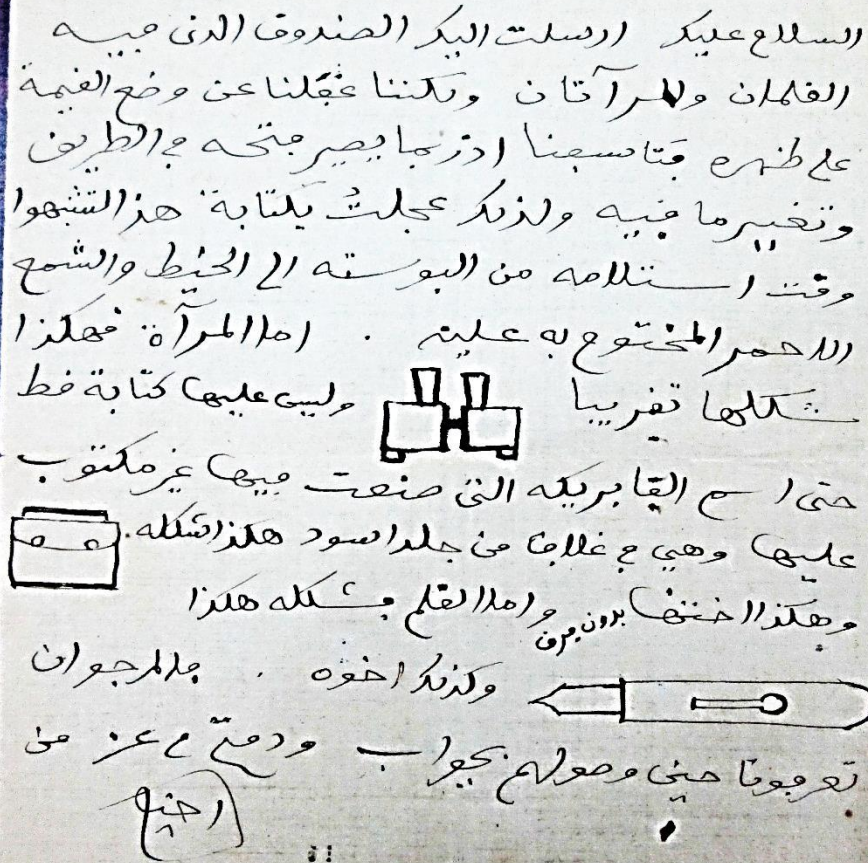 السلام عليكم ارسلت اليكم الصندوق الذى فيه
القلمان والمرآتان ولكننا غفلنا عن وضع القيمة
على ظهره فتأسفنا اذ ربما يصير فتحه في الطريق
وتغيير ما فيه ولذلك عجلت بكتابة هذا لتنتبهوا
وقت استلامه من البوسته الى الخيط والشمع
الاحمر المختوم به عليه . اما المرآة فهكذا
شكلها تقريبا وليس عليها كتابة قط
حتى اسم الفابريكه التى صنعت فيها غير مكتوب
عليها وهي في غلاف من جلد اسود هكذا شكله.
وهكذا اختها بدون فرق واما القلم فشكله هكذا
وكذلك اخوه . فالمرجو ان
تعرفونا حين وصولهم بجواب ودمتم في عز من
اخيكم